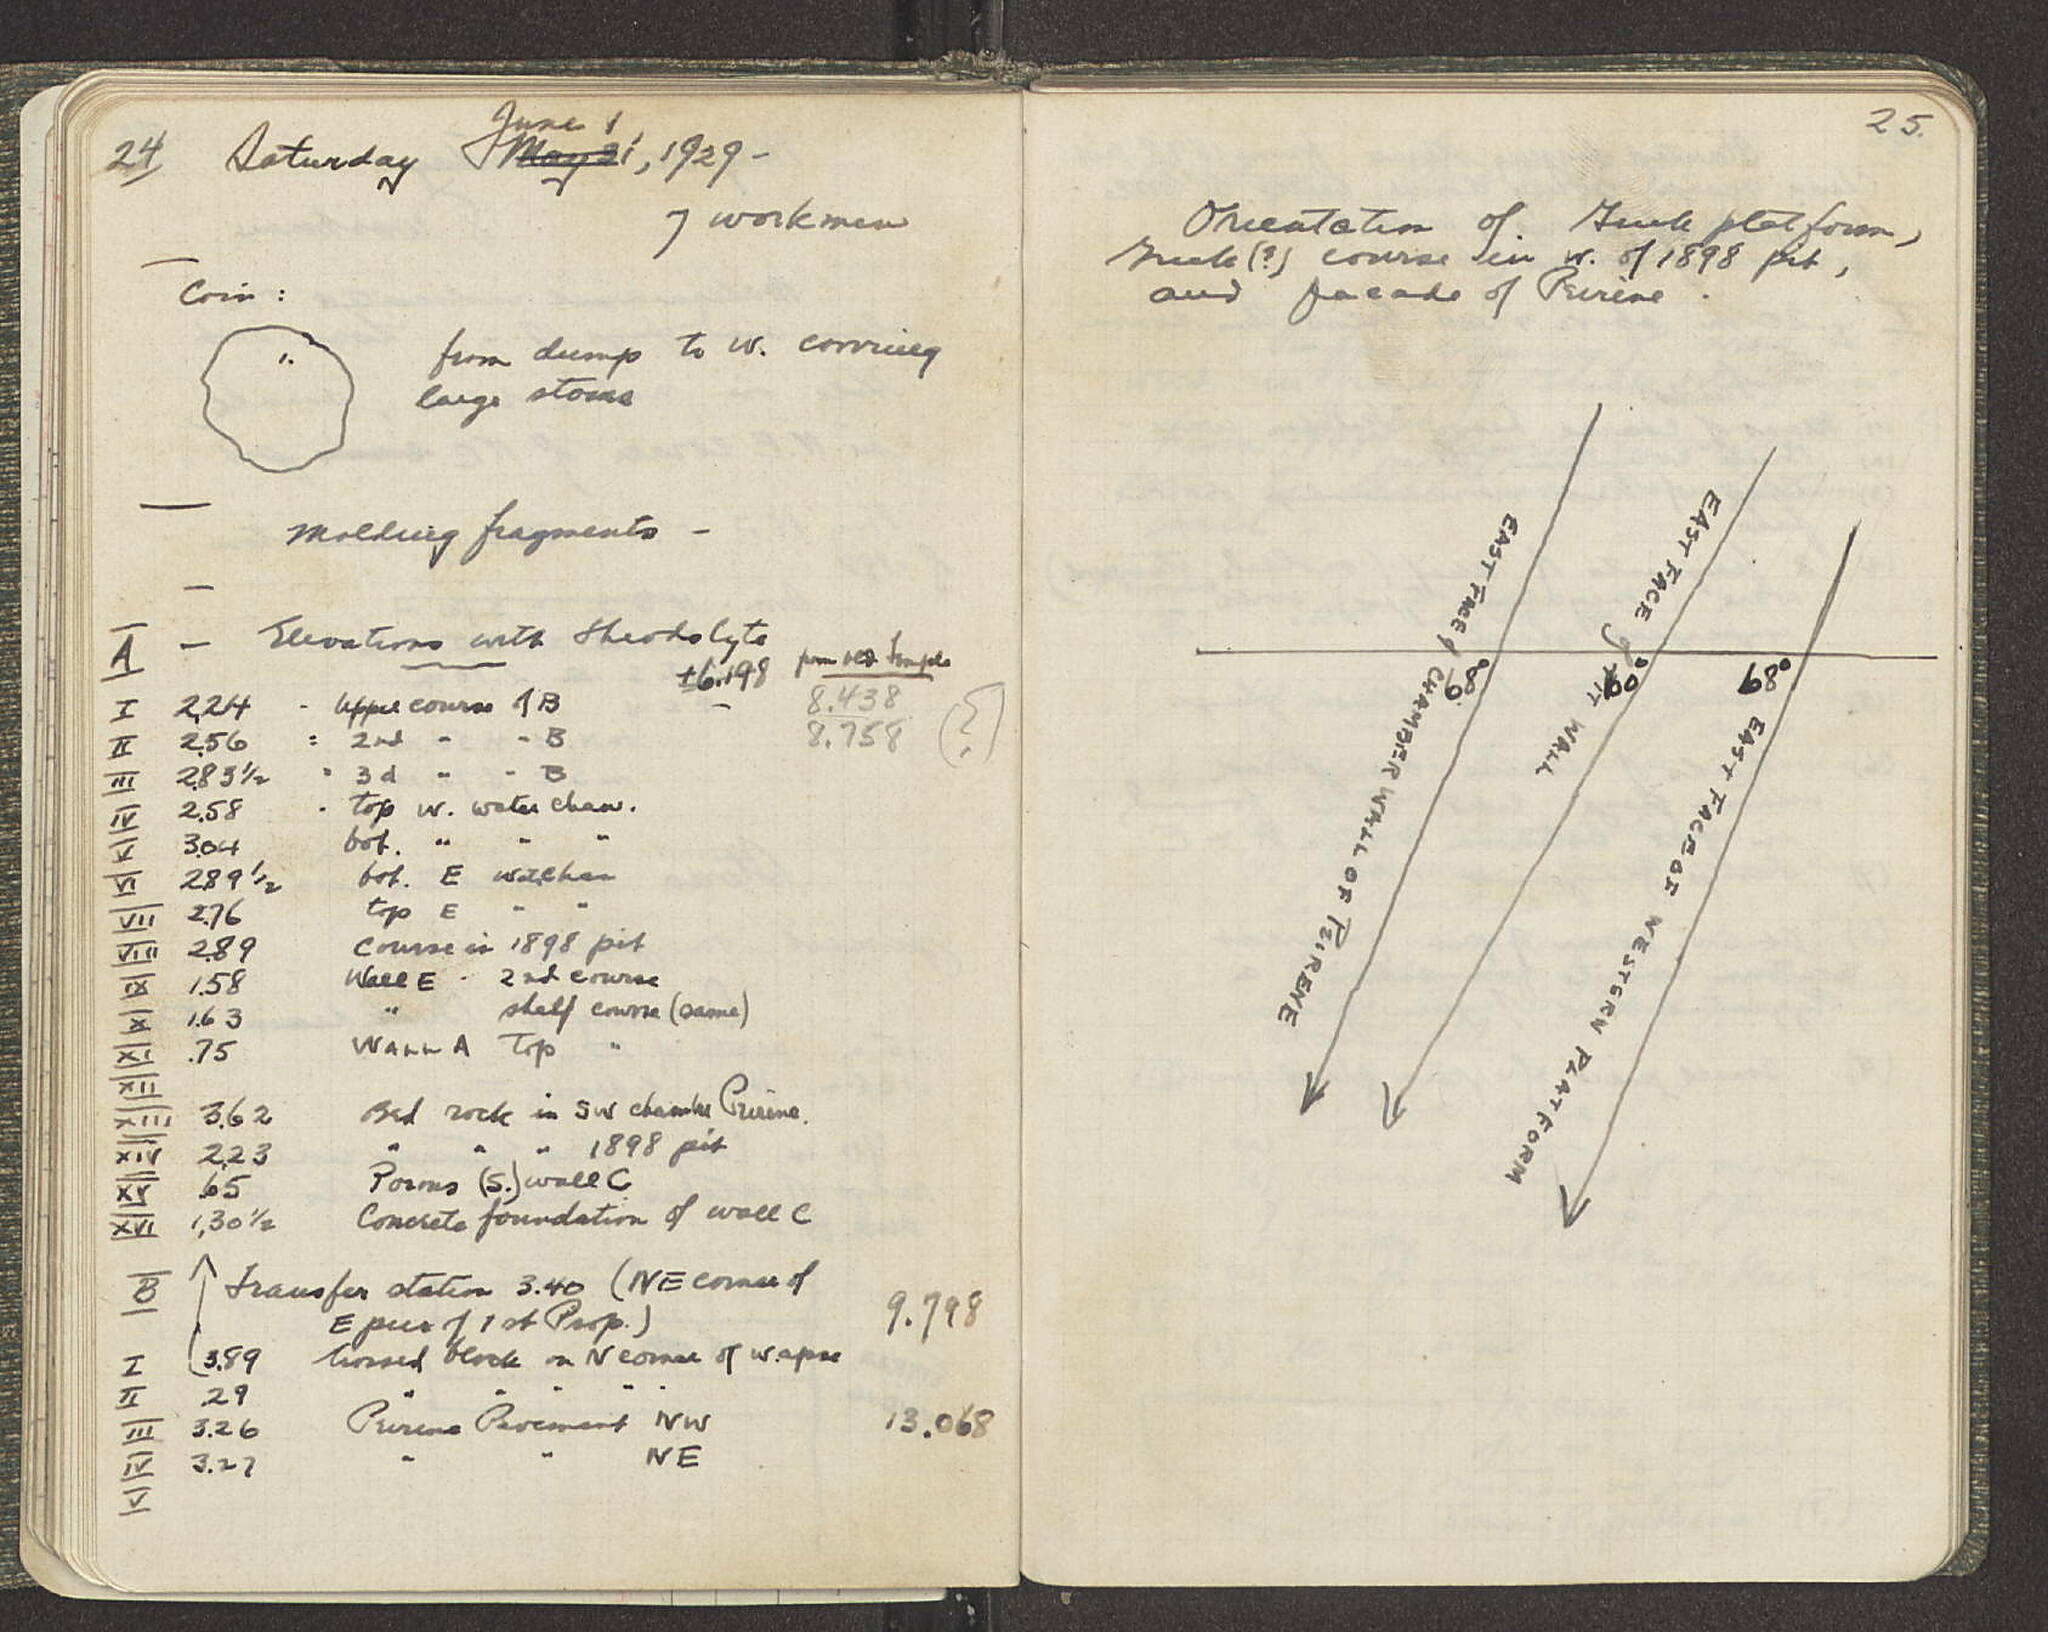 24 Saturday June 1
May 31, 1929 -
7 workmen
Coin :
1.
from dump to w. covering
large stones
Molding fragments -
A - Elevations with theodolyte
±6.198 from ved temple
I 2.24 - Upper course of B - 8.438 (?)
II 2.56 = 2nd " - B 8.758
III 2.83½ " 3d " - B
IV 2.58 - top w. water chan.
V 3.04 bot. " " "
VI 2.89½ bot. E watchan
VII 2.76 top E " "
VIII 2.89 Course in 1898 pit
IX 1.58 Wall E - 2nd course
X 1.63 " shelf course (same)
XI .75 WALL A Top "
XII
XIII 3.62 Bed rock in SW chamber Peirene.
XIV 2.23 " " " 1898 pit
XV .65 Poros (S.) wall C
XVI 1,30½ Concrete foundation of wall C
B Transfer station 3.40 (NE corner of
E pier of 1st Prop.) 9.798
I 3.89 bossed block on N corner of w. apse
II .29 " " " " "
III 3.26 Peirene Pavement NW 13.068
IV 3.27 " " NE
V
25.
Orientation of Greek platform,
Greek (?) course in w. of 1898 pit,
and facade of Peirene.
EAST FACE of CHAMBER WALL OF PEIRENE
68°
EAST FACE of PIT WALL
60°
68°
EAST FACE OF WESTERN PLATFORM